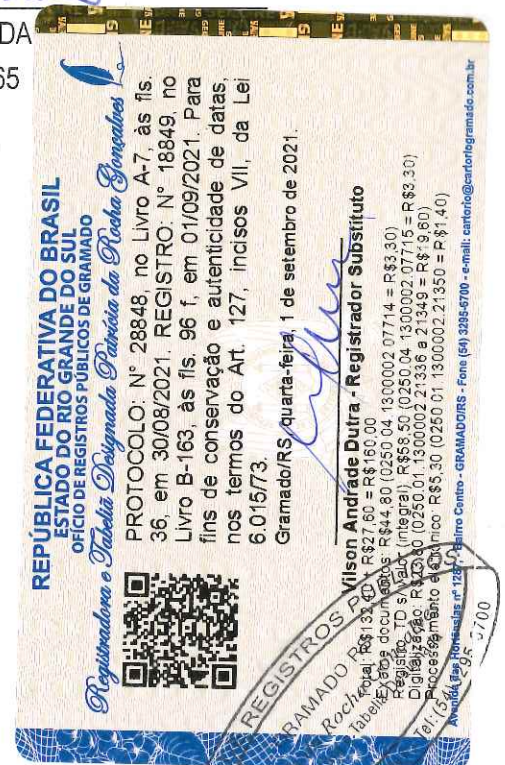 DA
65
REPÚBLICA FEDERATIVA DO BRASIL
ESTADO DO RIO GRANDE DO SUL
OFÍCIO DE REGISTROS PÚBLICOS DE GRAMADO
Registradora e Tabeliã Designada Patrícia da Rocha Gonçalves
PROTOCOLO: N° 28848, no Livro A-7, às fls.
36, em 30/08/2021. REGISTRO: N° 18849, no
Livro B-163, às fls. 96 f, em 01/09/2021. Para
fins de conservação e autenticidade de datas,
nos termos do Art. 127, incisos VII, da Lei
6.015/73.
Gramado/RS, quarta-feira, 1 de setembro de 2021.
Vilson Andrade Dutra - Registrador Substituto
Total: R$27,60 = R$160,00
Exame documentos: R$44,80 (0250.04.1300002.07714 = R$3,30)
Registro TD s/ valor (integral) R$58,50 (0250.04.1300002.07715 = R$3,30)
Digitalização: R$23,80 (0250.01.1300002.21336 a 21349 = R$19,60)
Processamento eletrônico R$5,30 (0250.01.1300002.21350 = R$1,40)
Avenida das Hortensias nº Bairro Centro - GRAMADO/RS - Fone (54) 3295-6700 - e-mail: cartorio@cartoriogramado.com.br
REGISTROS
GRAMADO
Rocha
Tabeliã
Tel.: (54) 3295 6700